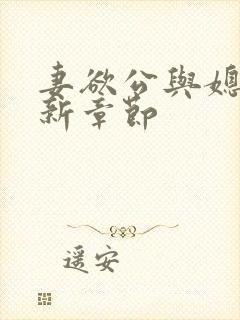 妻欲公與媳
新章節
遥安